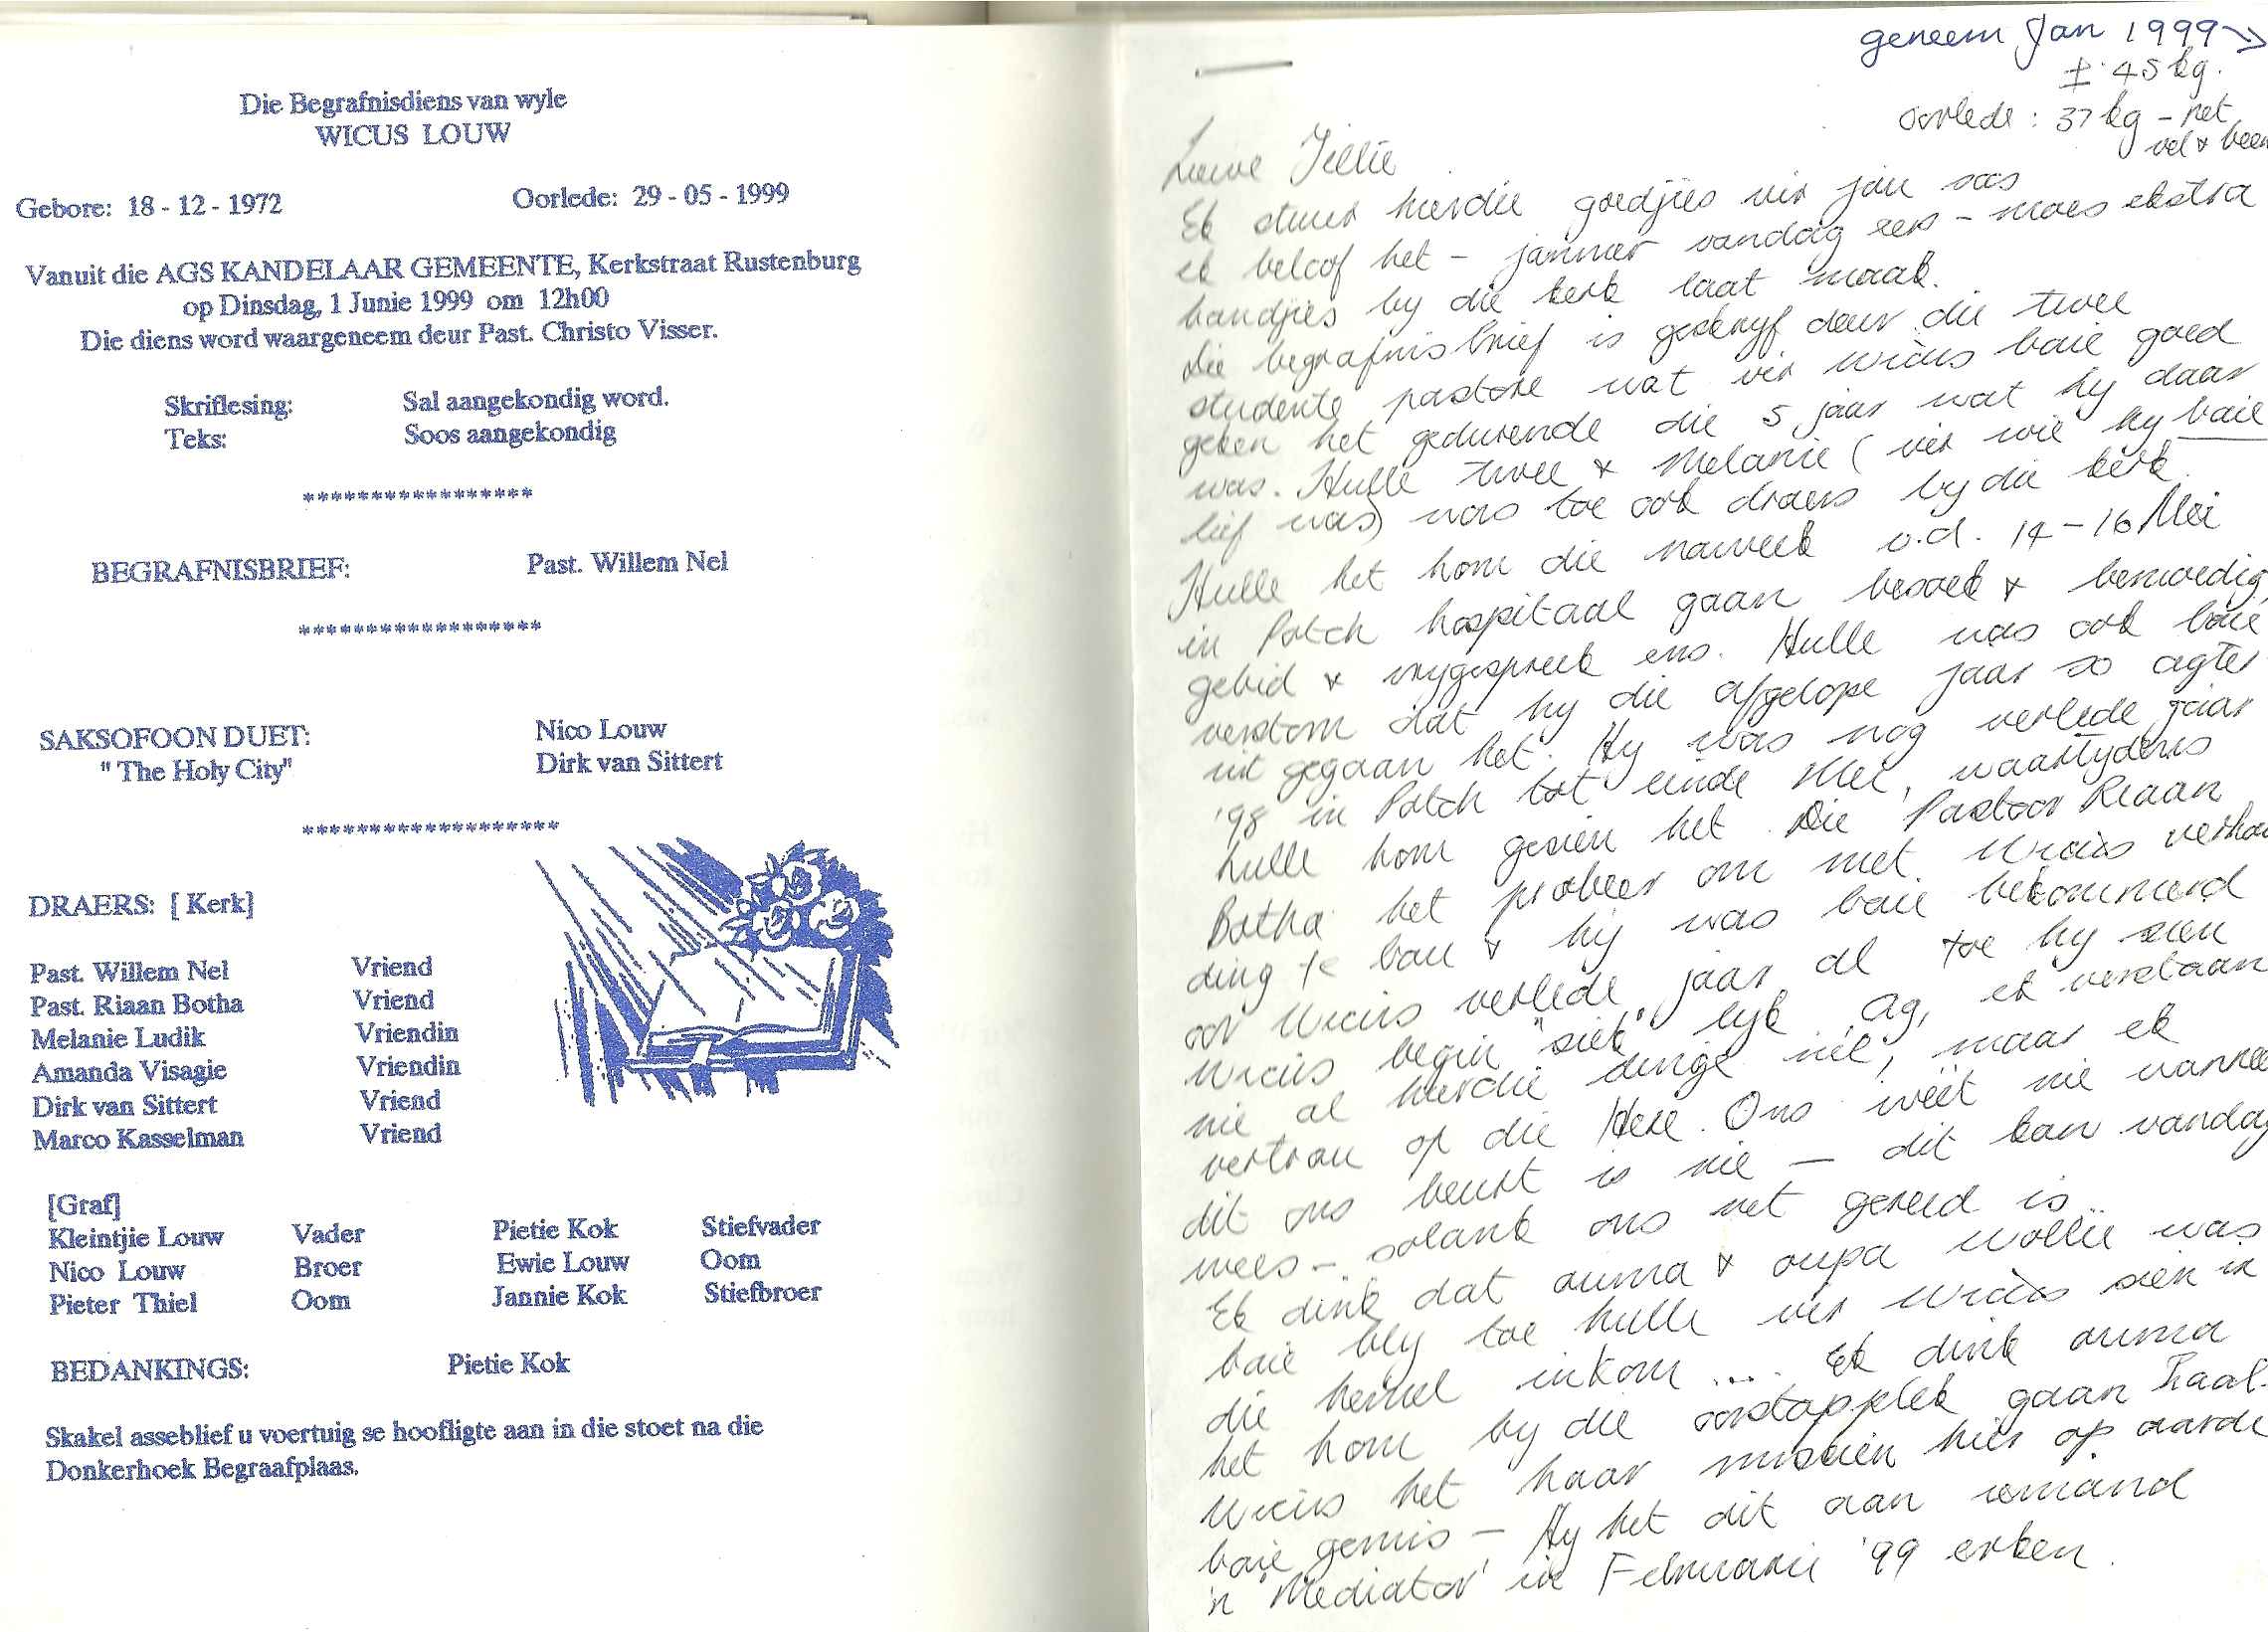 Die Begrafnisdiens van wyle
WICUS LOUW
Gebore: 18 - 12 - 1972 Oorlede: 29 - 05 - 1999
Vanuit die AGS KANDELAAR GEMEENTE, Kerkstraat Rustenburg
op Dinsdag, 1 Junie 1999 om 12h00
Die diens word waargeneem deur Past. Christo Visser.
Skriflesing: Sal aangekondig word.
Teks: Soos aangekondig
*****************
BEGRAFNISBRIEF: Past. Willem Nel
******************
SAKSOFOON DUET: Nico Louw
" The Holy City" Dirk van Sittert
*******************
DRAERS: [ Kerk]
Past. Willem Nel Vriend
Past. Riaan Botha Vriend
Melanie Ludik Vriendin
Amanda Visagie Vriendin
Dirk van Sittert Vriend
Marco Kasselman Vriend
[Graf]
Kleintjie Louw Vader Pietie Kok Stiefvader
Nico Louw Broer Ewie Louw Oom
Pieter Thiel Oom Jannie Kok Stiefbroer
BEDANKINGS: Pietie Kok
Skakel asseblief u voertuig se hoofligte aan in die stoet na die
Donkerhoek Begraafplaas.
geneem Jan 1999 →
± 45 kg.
oorlede: 37 kg - net
vel & been
Liewe
Ek stuur hierdie goedjies vir jou soos
ek beloof het - jammer vandag eers - moes ekstra
bandjies by die kerk laat maak.
Die begrafnisbrief is geskryf deur die twee
studente pastore wat vir Wicus baie goed
geken het gedurende die 5 jaar wat hy daar
was. Hulle twee & Melanie (vir wie hy baie
lief was) was toe ook draers by die kerk.
Hulle het hom die naweek v.d. 14 - 16 Mei
in Potch hospitaal gaan besoek & bemoedig,
gebid & vrygespreek ens. Hulle was ook baie
verstom dat hy die afgelope jaar so agter-
uit gegaan het. Hy was nog verlede jaar
'98 in Potch tot einde Mei, waartydens
hulle hom gesien het. Die Pastoor Riaan
Botha het probeer om met Wicus verhou
ding te bou & hy was baie bekommerd
oor Wicus verlede jaar al toe hy sien
Wicus begin "siek" lyk. Ag, ek verstaan
nie al hierdie dinge nie, maar ek
vertrou op die Here. Ons weet nie wanneer
dit ons beurt is nie - dit kan vandag
wees - solank ons net gereed is..
Ek dink dat ouma & oupa Wollie was
baie bly toe hulle vir Wicus sien in
die hemel inkom .... Ek dink ouma
het hom by die oorstapplek gaan haal.
Wicus het haar miskien hier op aarde
baie gemis - Hy het dit aan iemand
'n 'Mediator' in Februarie '99 erken.